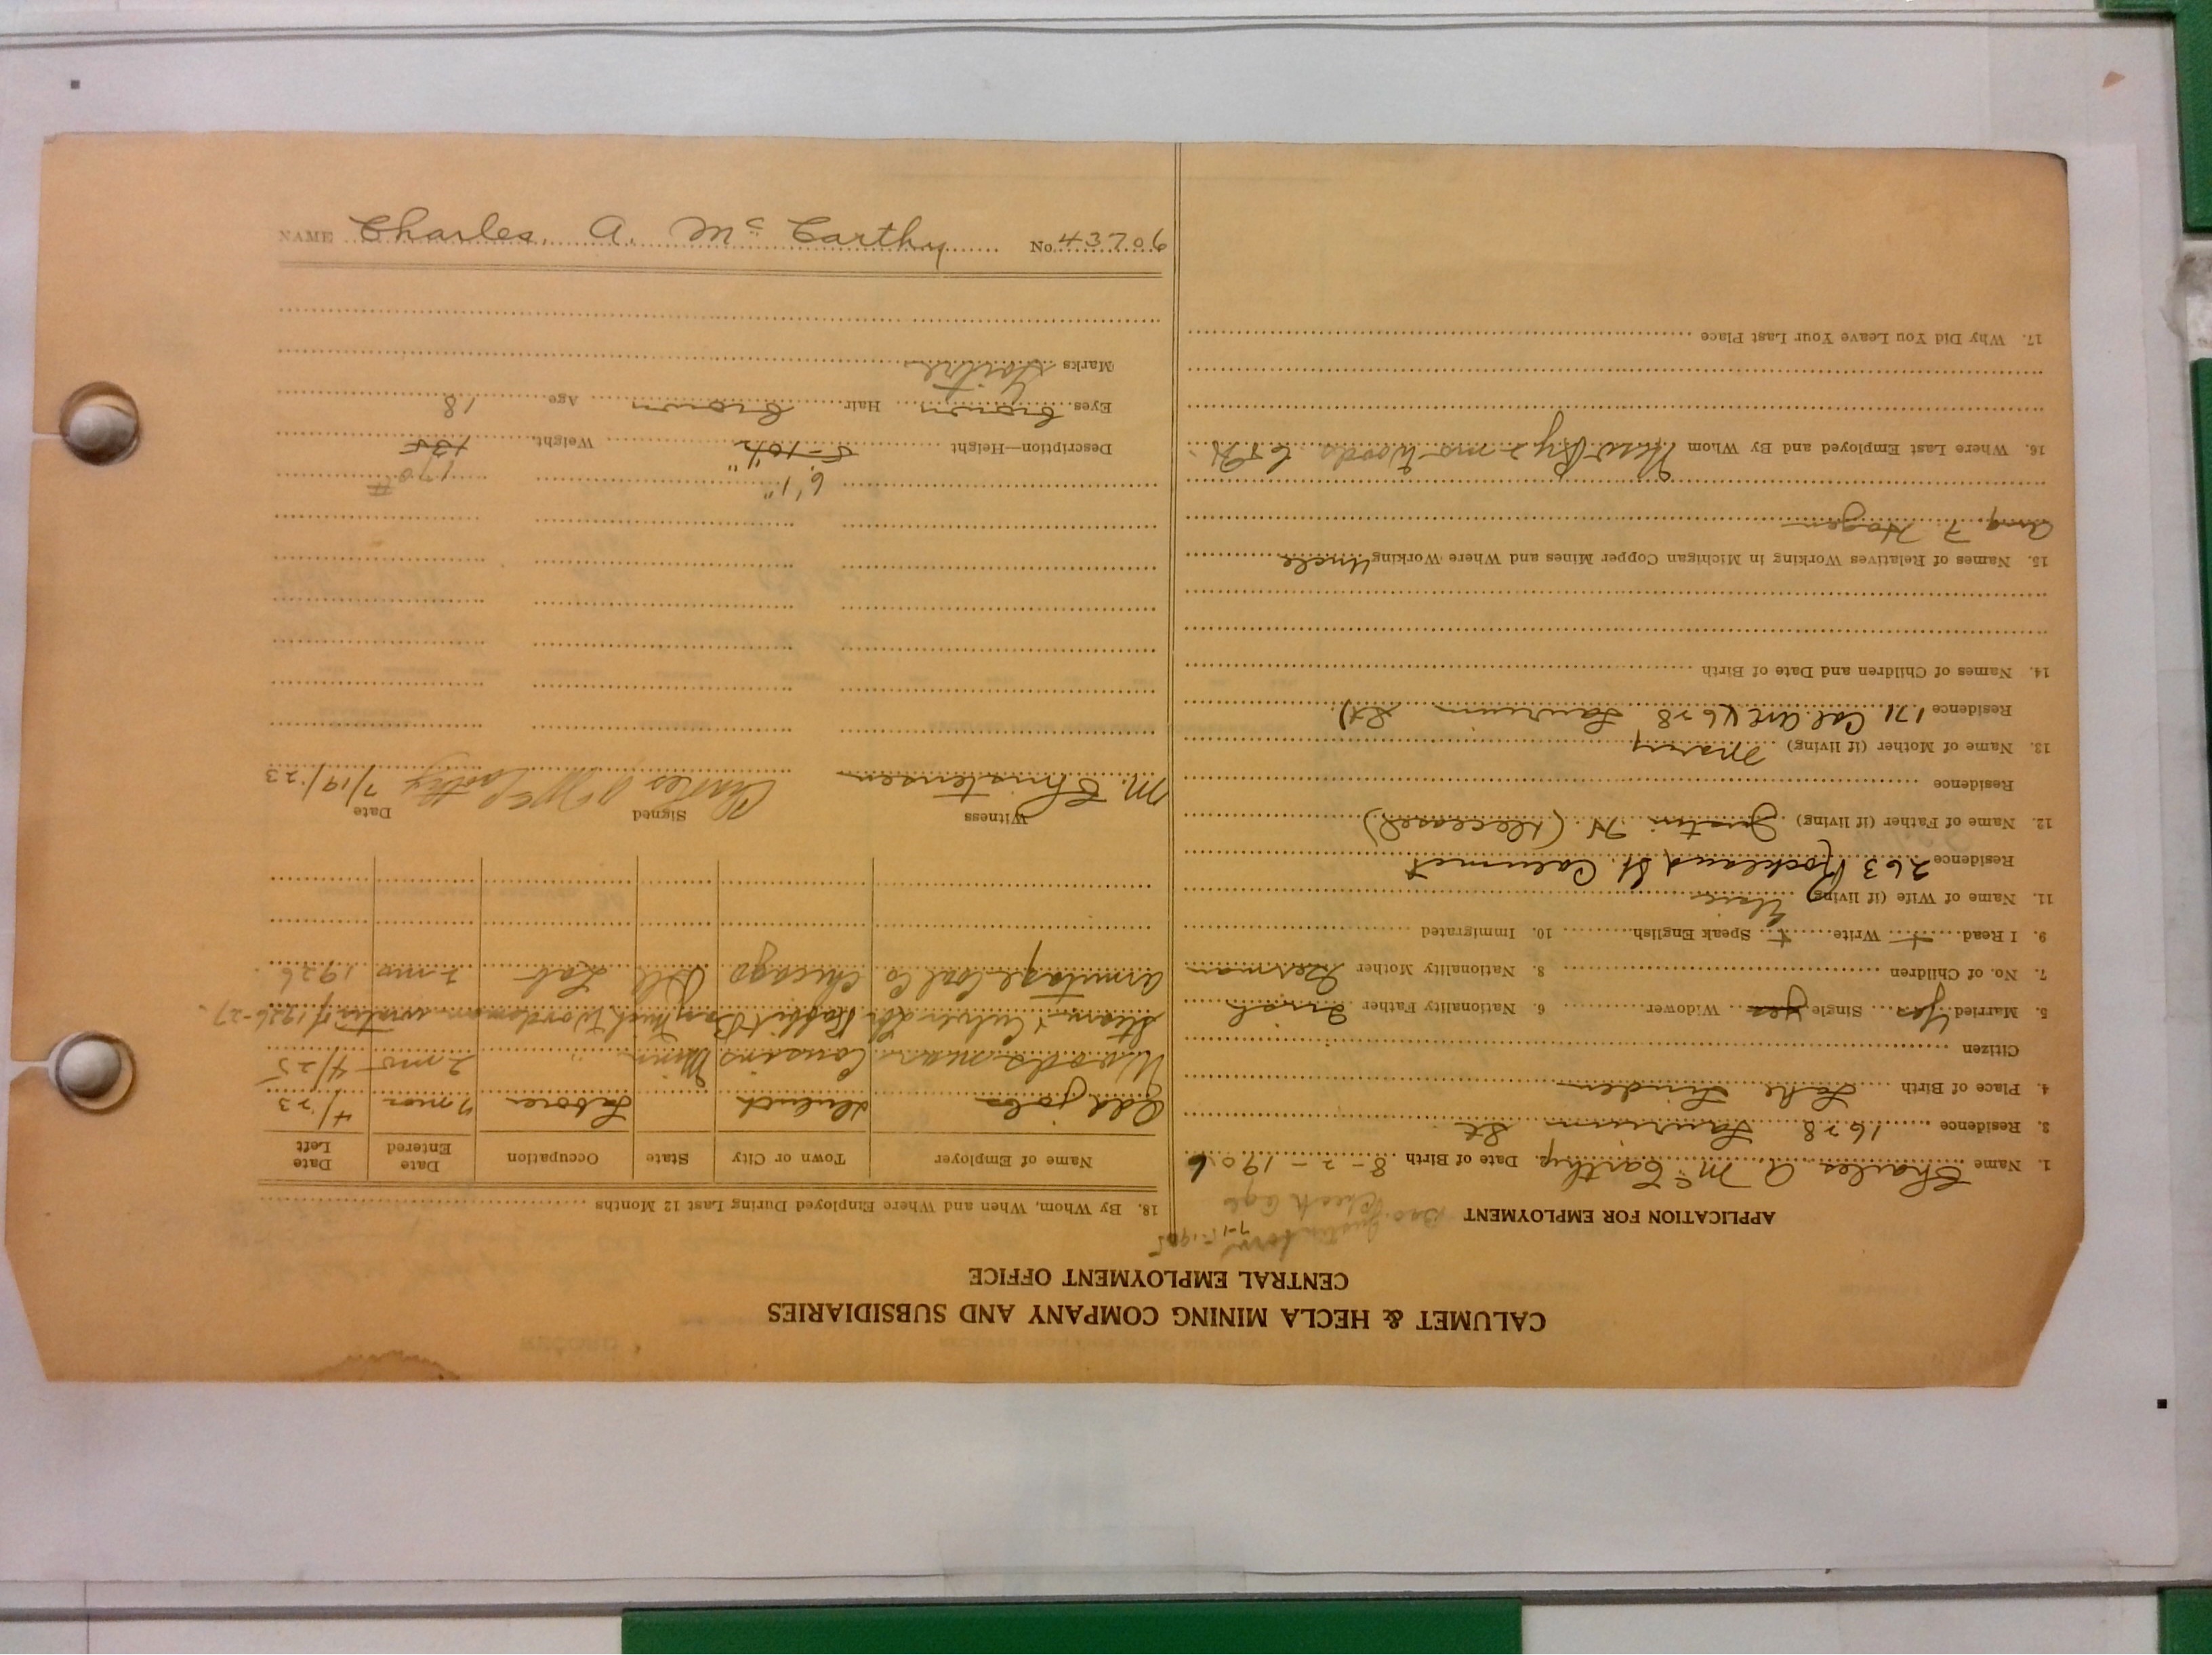 CALUMET & HECLA MINING COMPANY AND SUBSIDIARIES
CENTRAL EMPLOYMENT OFFICE
APPLICATION FOR EMPLOYMENT
Check age
7-15-1905
1. Name Charles A. McCarthy Date of Birth 8-2-1906
3. Residence 1628 Laurium St.
4. Place of Birth Lake Linden
Citizen
5. Married Yes Single yes Widower 6. Nationality Father Irish
7. No. of Children 8. Nationality Mother German
9. I Read + Write + Speak English 10. Immigrated
11. Name of Wife (if living)
Residence 263 Rockland St. Calumet
12. Name of Father (if living) Justin H (Deceased)
Residence
13. Name of Mother (if living) Mary
Residence 171 Cal. Ave (1628 Laurium St)
14. Names of Children and Date of Birth
15. Names of Relatives Working in Michigan Copper Mines and Where Working Uncle
Aug. F. Hagen
16. Where Last Employed and By Whom 2 mo Woods C & H
17. Why Did You Leave Your Last Place
18. By Whom, When and Where Employed During Last 12 Months
Name of Employer Town or City State Occupation Date Entered Date Left
Odd jobs Duluth Laborer 7 mos 4/23
Woodsman Cousins Minn " 2 mo 4/25
Stearn & Culver Rabbit Bay Mich Woodsman winter of 1926-27
Armitage Coal Co Chicago Ill Lab 2 mo 1926
Witness Signed Date
M. Christensen Charles A McCarthy 7/19/23
6' 1" 170 #
Description—Height 5-10½" Weight 135
Eyes brown Hair brown Age 18
Marks Goitre
NAME Charles. A. McCarthy No. 43706